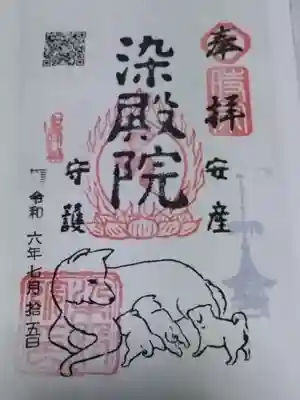 奉拝
安産
染殿院
守護
令和六年七月拾五日